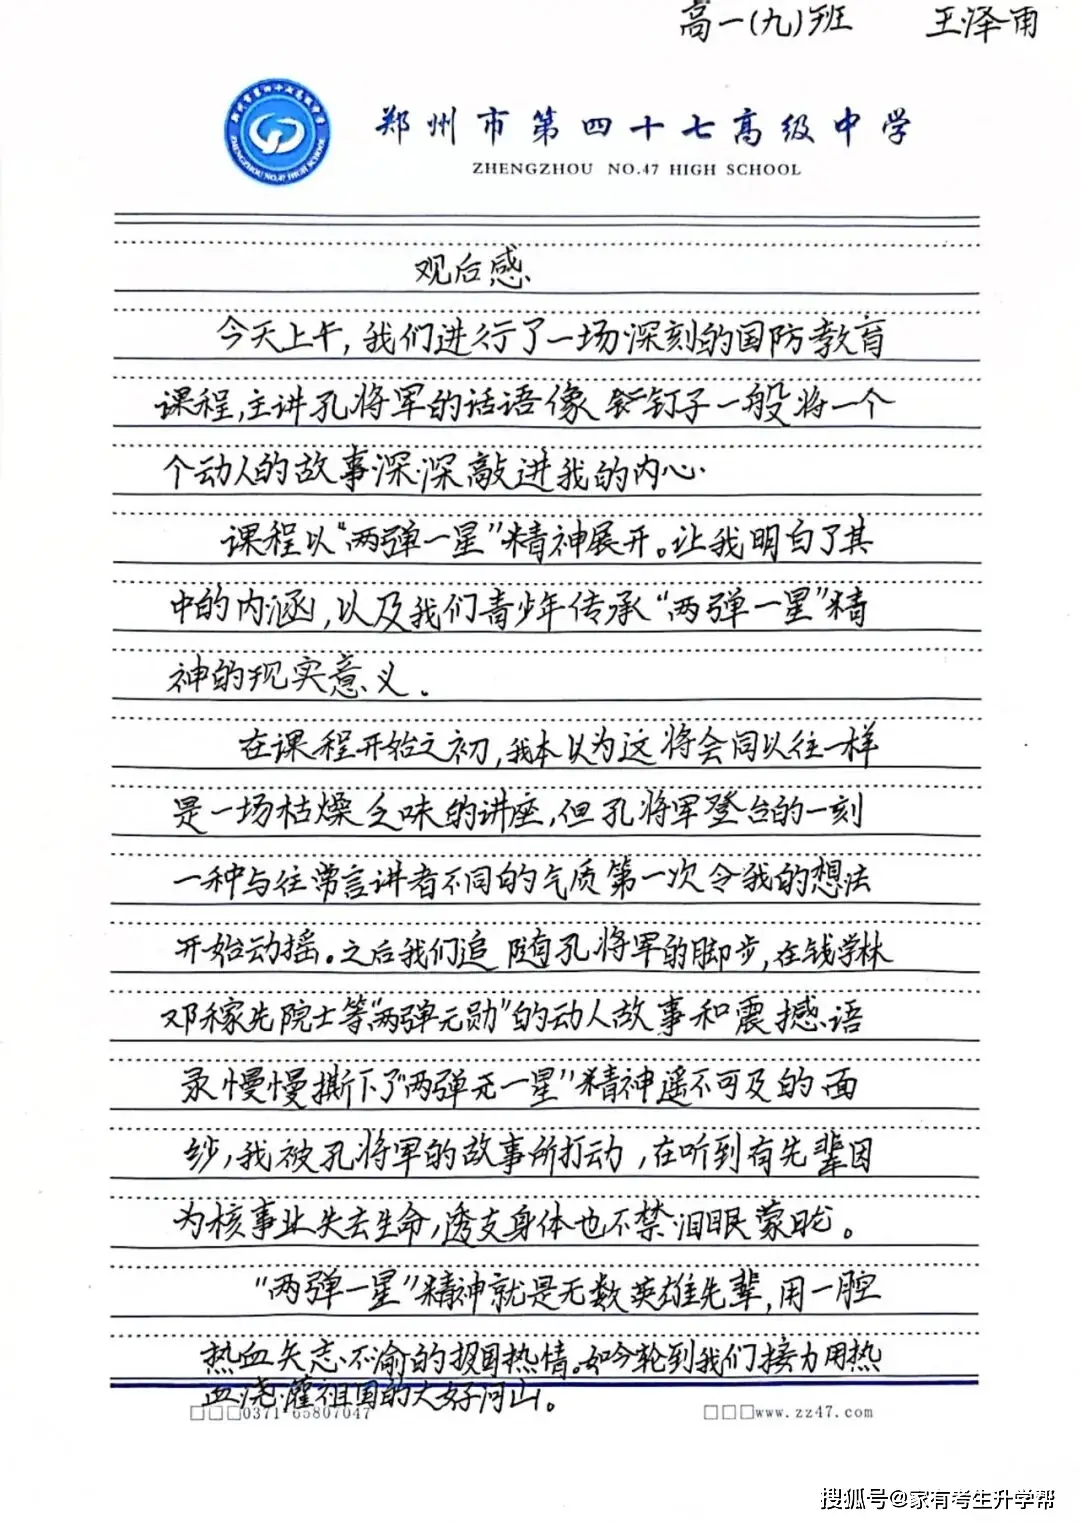 高一(九)班 王泽雨
郑州市第四十七高级中学
ZHENGZHOU NO.47 HIGH SCHOOL
观后感
今天上午,我们进行了一场深刻的国防教育
课程,主讲孔将军的话语像钉子一般将一个
个动人的故事深深敲进我的内心.
课程以“两弹一星”精神展开。让我明白了其
中的内涵,以及我们青少年传承“两弹一星”精
神的现实意义.
在课程开始之初,我本以为这将会同以往一样
是一场枯燥乏味的讲座,但孔将军登台的一刻
一种与往常言讲者不同的气质第一次令我的想法
开始动摇.之后我们追随孔将军的脚步,在钱学林
邓稼先院士等“两弹元勋”的动人故事和震撼语
录慢慢撕下了“两弹一星”精神遥不可及的面
纱,我被孔将军的故事所打动,在听到有先辈因
为核事业失去生命,透支身体也不禁泪眼蒙眬。
“两弹一星”精神就是无数英雄先辈,用一腔
热血矢志不渝的报国热情。如今轮到我们接力用热
血浇灌祖国的大好河山。
□□□0371-65807047 □□□www.zz47.com
搜狐号@家有考生升学帮